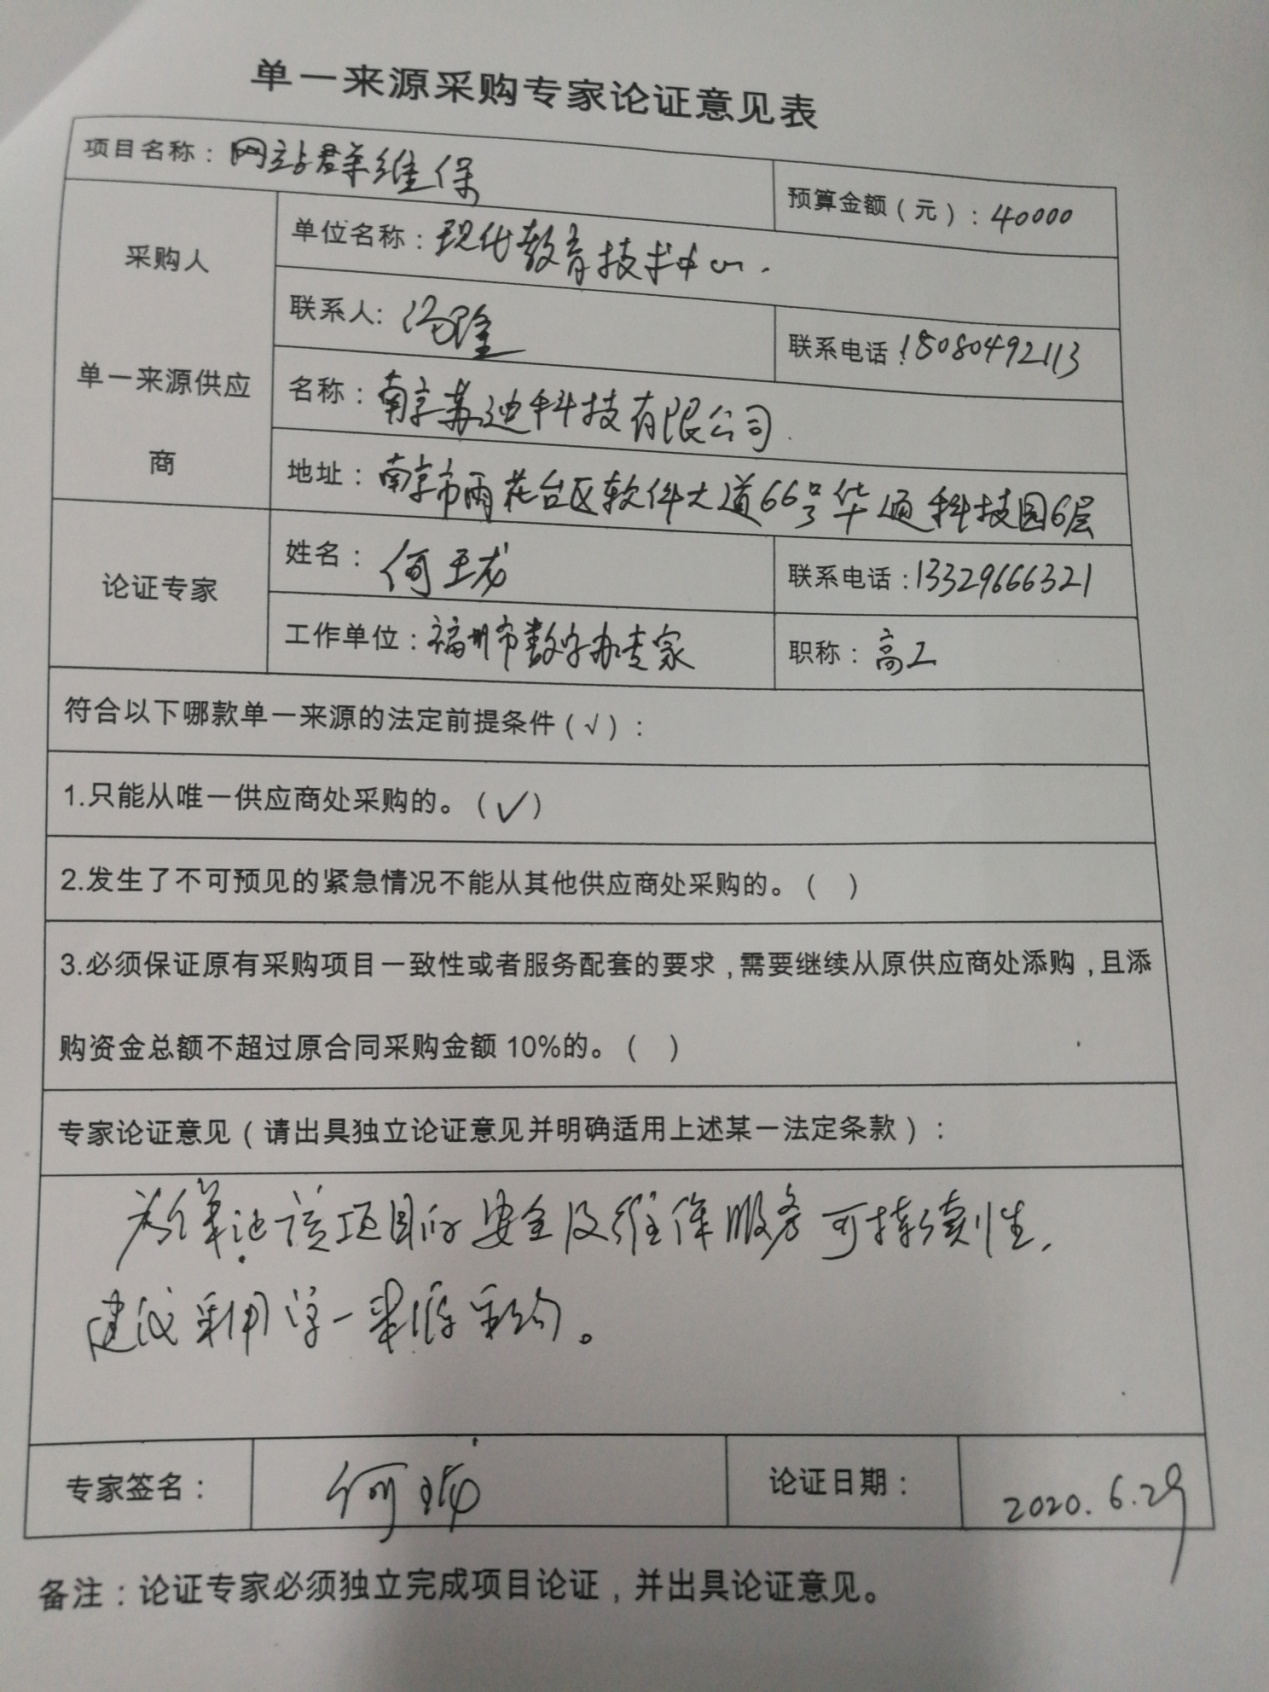 单一来源采购专家论证意见表
项目名称：网站群维保
预算金额（元）：40000
采购人
单位名称：现代教育技术中心.
联系人：冯隆
联系电话：18080492113
单一来源供应商
名称：南京苏迪科技有限公司
地址：南京市雨花台区软件大道66号华通科技园6层
论证专家
姓名：何玉龙
联系电话：13329666321
工作单位：福州市数字办专家
职称：高工
符合以下哪款单一来源的法定前提条件（√）：
1.只能从唯一供应商处采购的。（√）
2.发生了不可预见的紧急情况不能从其他供应商处采购的。（ ）
3.必须保证原有采购项目一致性或者服务配套的要求，需要继续从原供应商处添购，且添
购资金总额不超过原合同采购金额10%的。（ ）
专家论证意见（请出具独立论证意见并明确适用上述某一法定条款）：
为保证该项目的安全及维保服务可持续性，
建议采用单一来源采购。
专家签名：
何玉龙
论证日期：
2020.6.29
备注：论证专家必须独立完成项目论证，并出具论证意见。